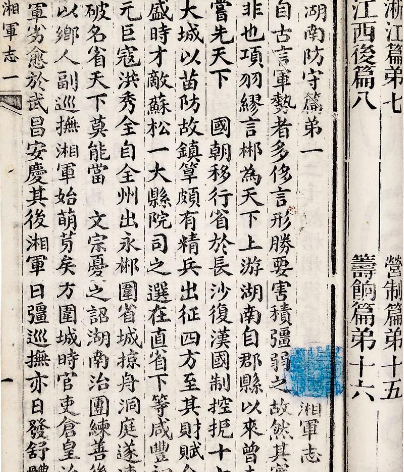 浙江篇弟七
營制篇弟十五
江西後篇八
籌餉篇弟十六
湖南防守篇弟一
湘軍志一
自古言軍埶者多侈言形勝要害積彊弱之故然其實
非也項羽繆言郴為天下上游湖南自郡縣以來曾
當先天下 國朝移行省於長沙復漢國制控扼十
大城以苗防故鎮筸頗有精兵出征四方至其財賦
盛時才敵蘇松一大縣院司之選在直省下等咸豐
元巨寇洪秀全自全州出永郴圍省城掠舟洞庭遂
破名省天下莫能當 文宗憂之詔湖南治團練善後
以鄉人副巡撫湘軍始萌芽矣方圍城時官吏倉皇
軍劣愈於武昌安慶其後湘軍日彊巡撫亦日發舒
湘軍志一
一